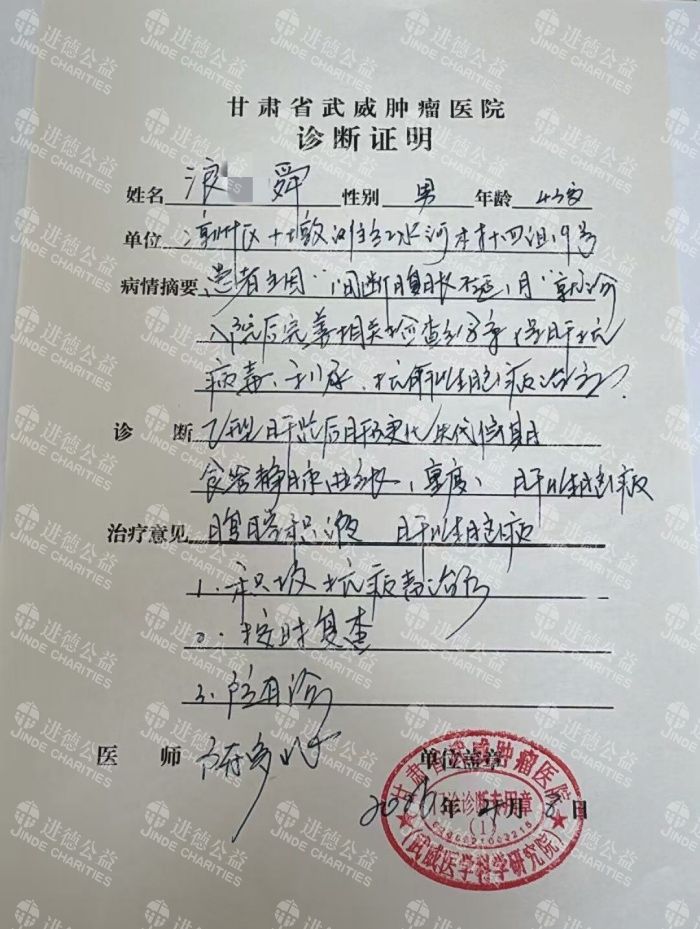 甘肃省武威肿瘤医院
诊断证明
姓名 舜 性别 男 年龄 43岁
单位 凉州区十墩滩 水河村十四组19号
病情摘要 患者主因"间断腹胀不适1月"就诊
入院后完善相关检查 保肝抗
病毒、利尿、抗肝性脑病治疗.
诊断 乙型肝炎后肝硬化失代偿期
食管静脉曲张(重度) 肝性脑病
治疗意见 腹腔积液 肝性脑病
1. 积极抗病毒治疗
2. 按时复查
3. 随诊
医师
单位盖章
年 月 日
甘肃省武威肿瘤医院
诊断专用章
(1)
(武威医学科学研究院)
进德公益
JINDE CHARITIES